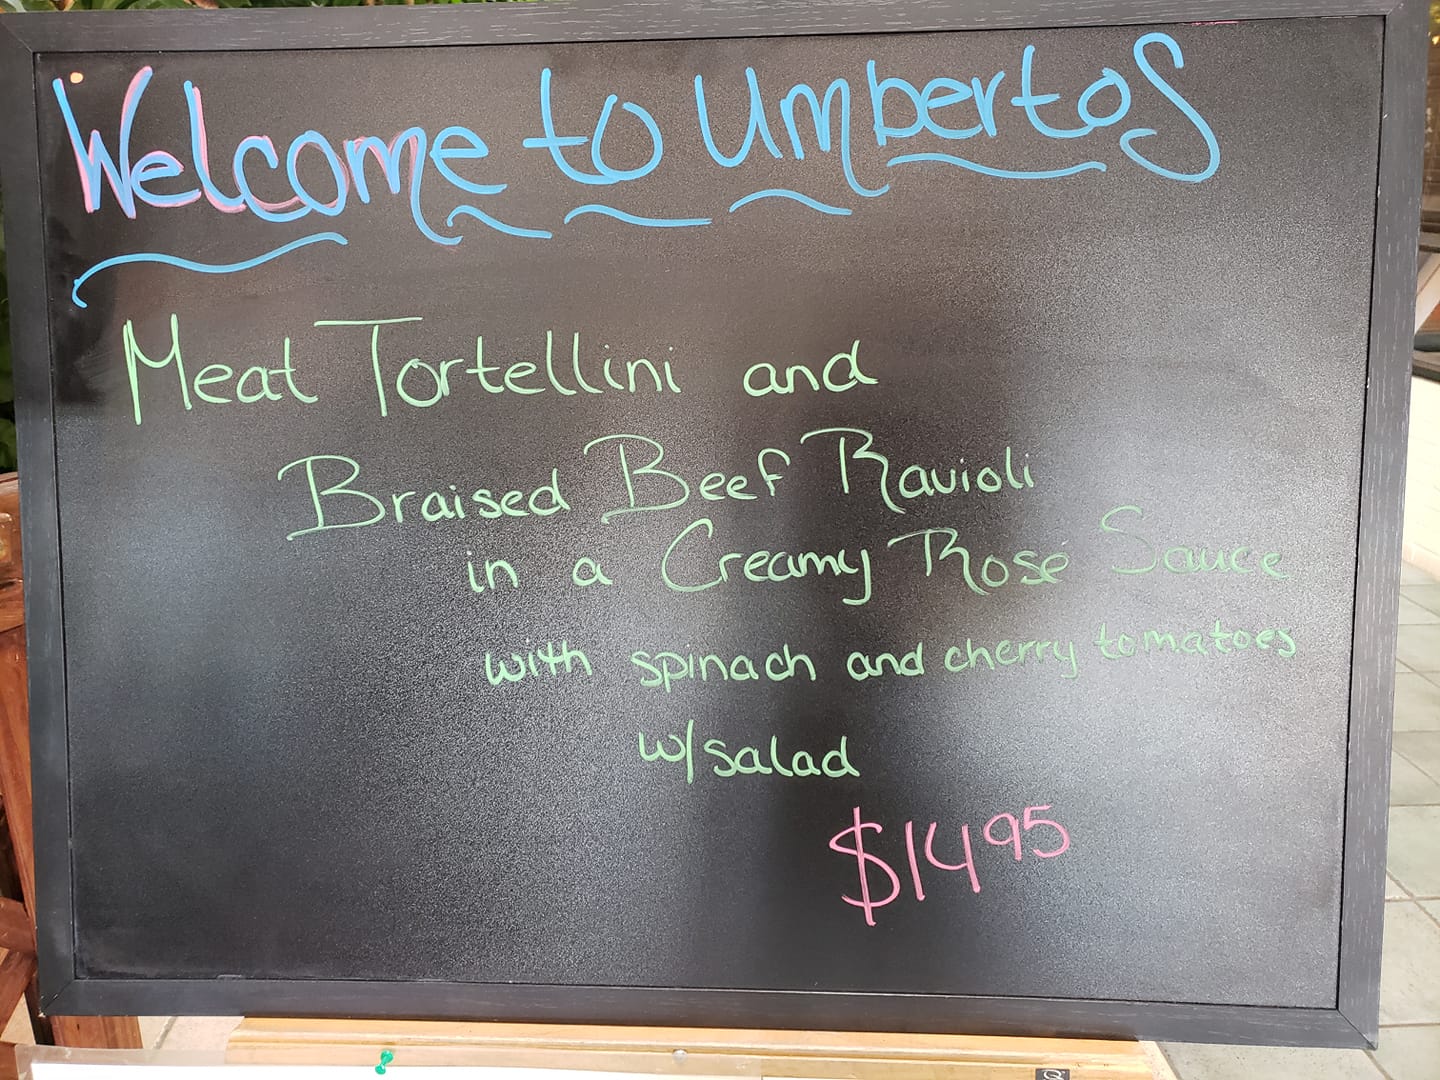 Welcome to Umbertos
Meat Tortellini and
Braised Beef Ravioli
in a Creamy Rosé Sauce
with spinach and cherry tomatoes
w/salad
$1495